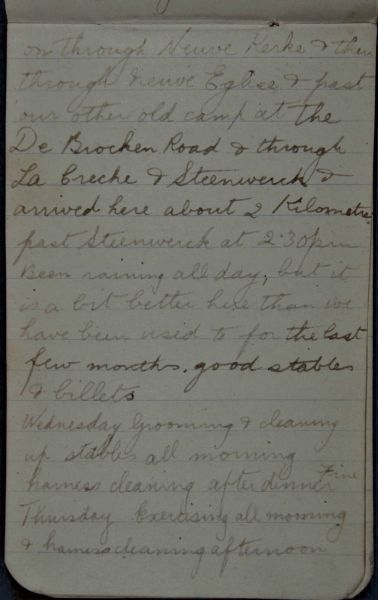 on through Neuve Kerke & then
through Neuve Eglise & past
our other old camp at the
De Brocken Road & through
La Creche & Steenwerck &
arrived here about 2 Kilometres
past Steenwerck at 2.30pm
Been raining all day, but it
is a bit better here than we
have been used to for the last
few months. good stables
& billets
Wednesday Grooming & cleaning
up stables all morning
harness cleaning after dinner Fine
Thursday Exercising all morning
& harness cleaning afternoon